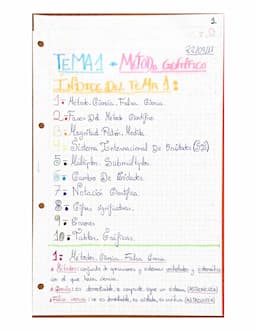 1
22/09/17
TEMA 1 - MÉTODO CIENTÍFICO
ÍNDICE DEL TEMA 1:
1- Método. Ciencia. Falsa Ciencia.
2- Fases Del Método Científico.
3- Magnitud. Patrón. Medida.
4- Sistema Internacional De Unidades (SI)
5- Múltiplos. Submúltiplos.
6- Cambio De Unidades.
7- Notación Científica.
8- Cifras significativas.
9- Errores.
10- Tablas. Gráficas.
1- Método. Ciencia. Falsa Ciencia.
Método: conjunto de operaciones y sistemas ordenados y sistemático
en el que hacer ciencia.
Ciencia: es demostrable, es compartida, sigue un sistema (ASTRONOMÍA)
Falsa ciencia: no es demostrable, no es método (ASTROLOGÍA)